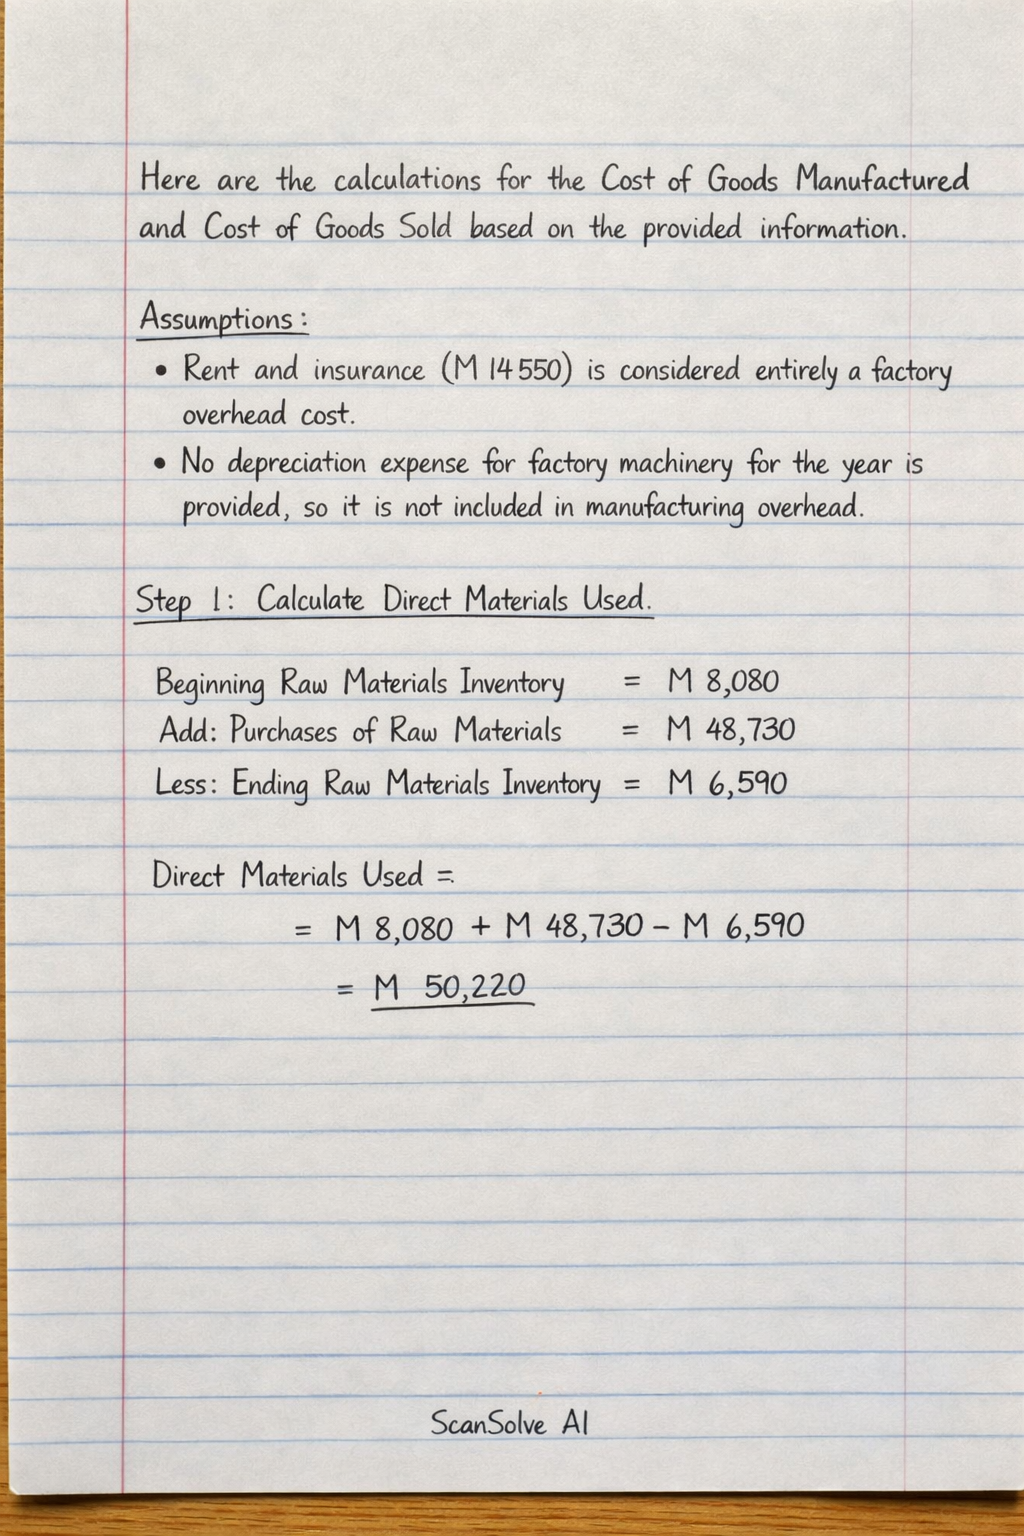 Here are the calculations for the Cost of Goods Manufactured
and Cost of Goods Sold based on the provided information.
Assumptions:
• Rent and insurance (M 14 550) is considered entirely a factory
overhead cost.
• No depreciation expense for factory machinery for the year is
provided, so it is not included in manufacturing overhead.
Step 1: Calculate Direct Materials Used.
Beginning Raw Materials Inventory = M 8,080
Add: Purchases of Raw Materials = M 48,730
Less: Ending Raw Materials Inventory = M 6,590
Direct Materials Used =
= M 8,080 + M 48,730 – M 6,590
= M 50,220
ScanSolve AI